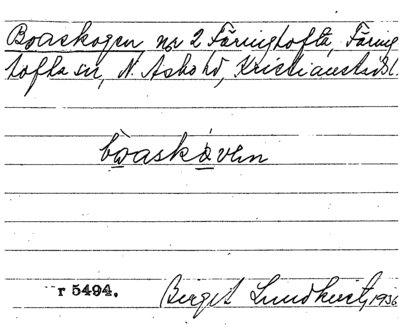 Boaskogen, nr 2 Färingtofta, Färing
tofta sn, N. Åsbo hd, Kristianstads l.
bòaskǻven
r 5494.
Bergit Lundkvist, 1936